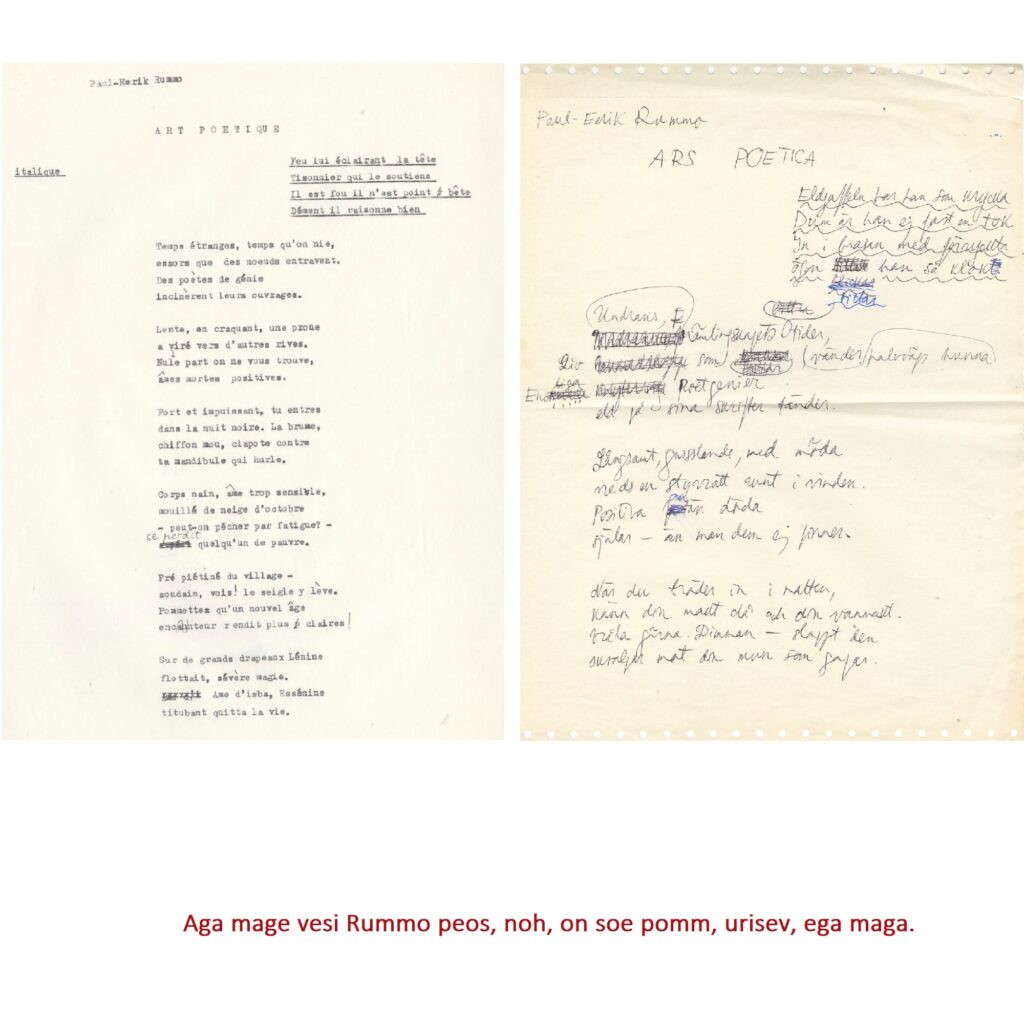 Paul-Eerik Rummo
ART POETIQUE
italique
Feu lui éclairant la tête
Tisonnier qui le soutiens
Il est fou il n'est point bête
Dément il raisonne bien
Temps étranges, temps qu'on nie,
essors que des noeuds entravent.
Des poètes de génie
incinèrent leurs ouvrages.
Lente, en craquant, une proue
a viré vers d'autres rives.
Nule part on ne vous trouve,
âmes mortes positives.
Fort et impuissant, tu entres
dans la nuit noire. La brume,
chiffon mou, clapote contre
ta mandibule qui hurle.
Corps nain, âme trop sensible,
mouillé de neige d'octobre
- peut-on pécher par fatigue? -
se perdit
quelqu'un de pauvre.
Pré piétiné du village -
soudain, vois! le seigle y lève.
Pommettes qu'un nouvel âge
enchanteur rendit plus claires!
Sur de grands drapeaux Lénine
flottait, sévère magie.
Ame d'isba, Essénine
titubant quitta la vie.
Paul-Eerik Rummo
ARS POETICA
Eldgaffeln har han som krycka
Dum är han ej fast en tok
In i brasan med
han så klok
tittar
Undrans,
Otider,
som vänder halvvägs hunna
Poetgenier
eld på sina skrifter tänder.
Långsamt, gnisslande, med möda
vreds en styvratt runt i vinden.
Positiva döda
själar – än man dem ej finner.
När du träder in i natten,
känn din makt då och din vanmakt.
Vråla gärna. Dimman – slappt den
mot din mun som gapar.
Aga mage vesi Rummo peos, noh, on soe pomm, urisev, ega maga.